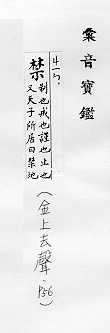 彙音寶鑑
ㄐㄧㄣˋ
禁
制也戒也謹也止也
又天子所居曰禁地
(金上去聲,P56)